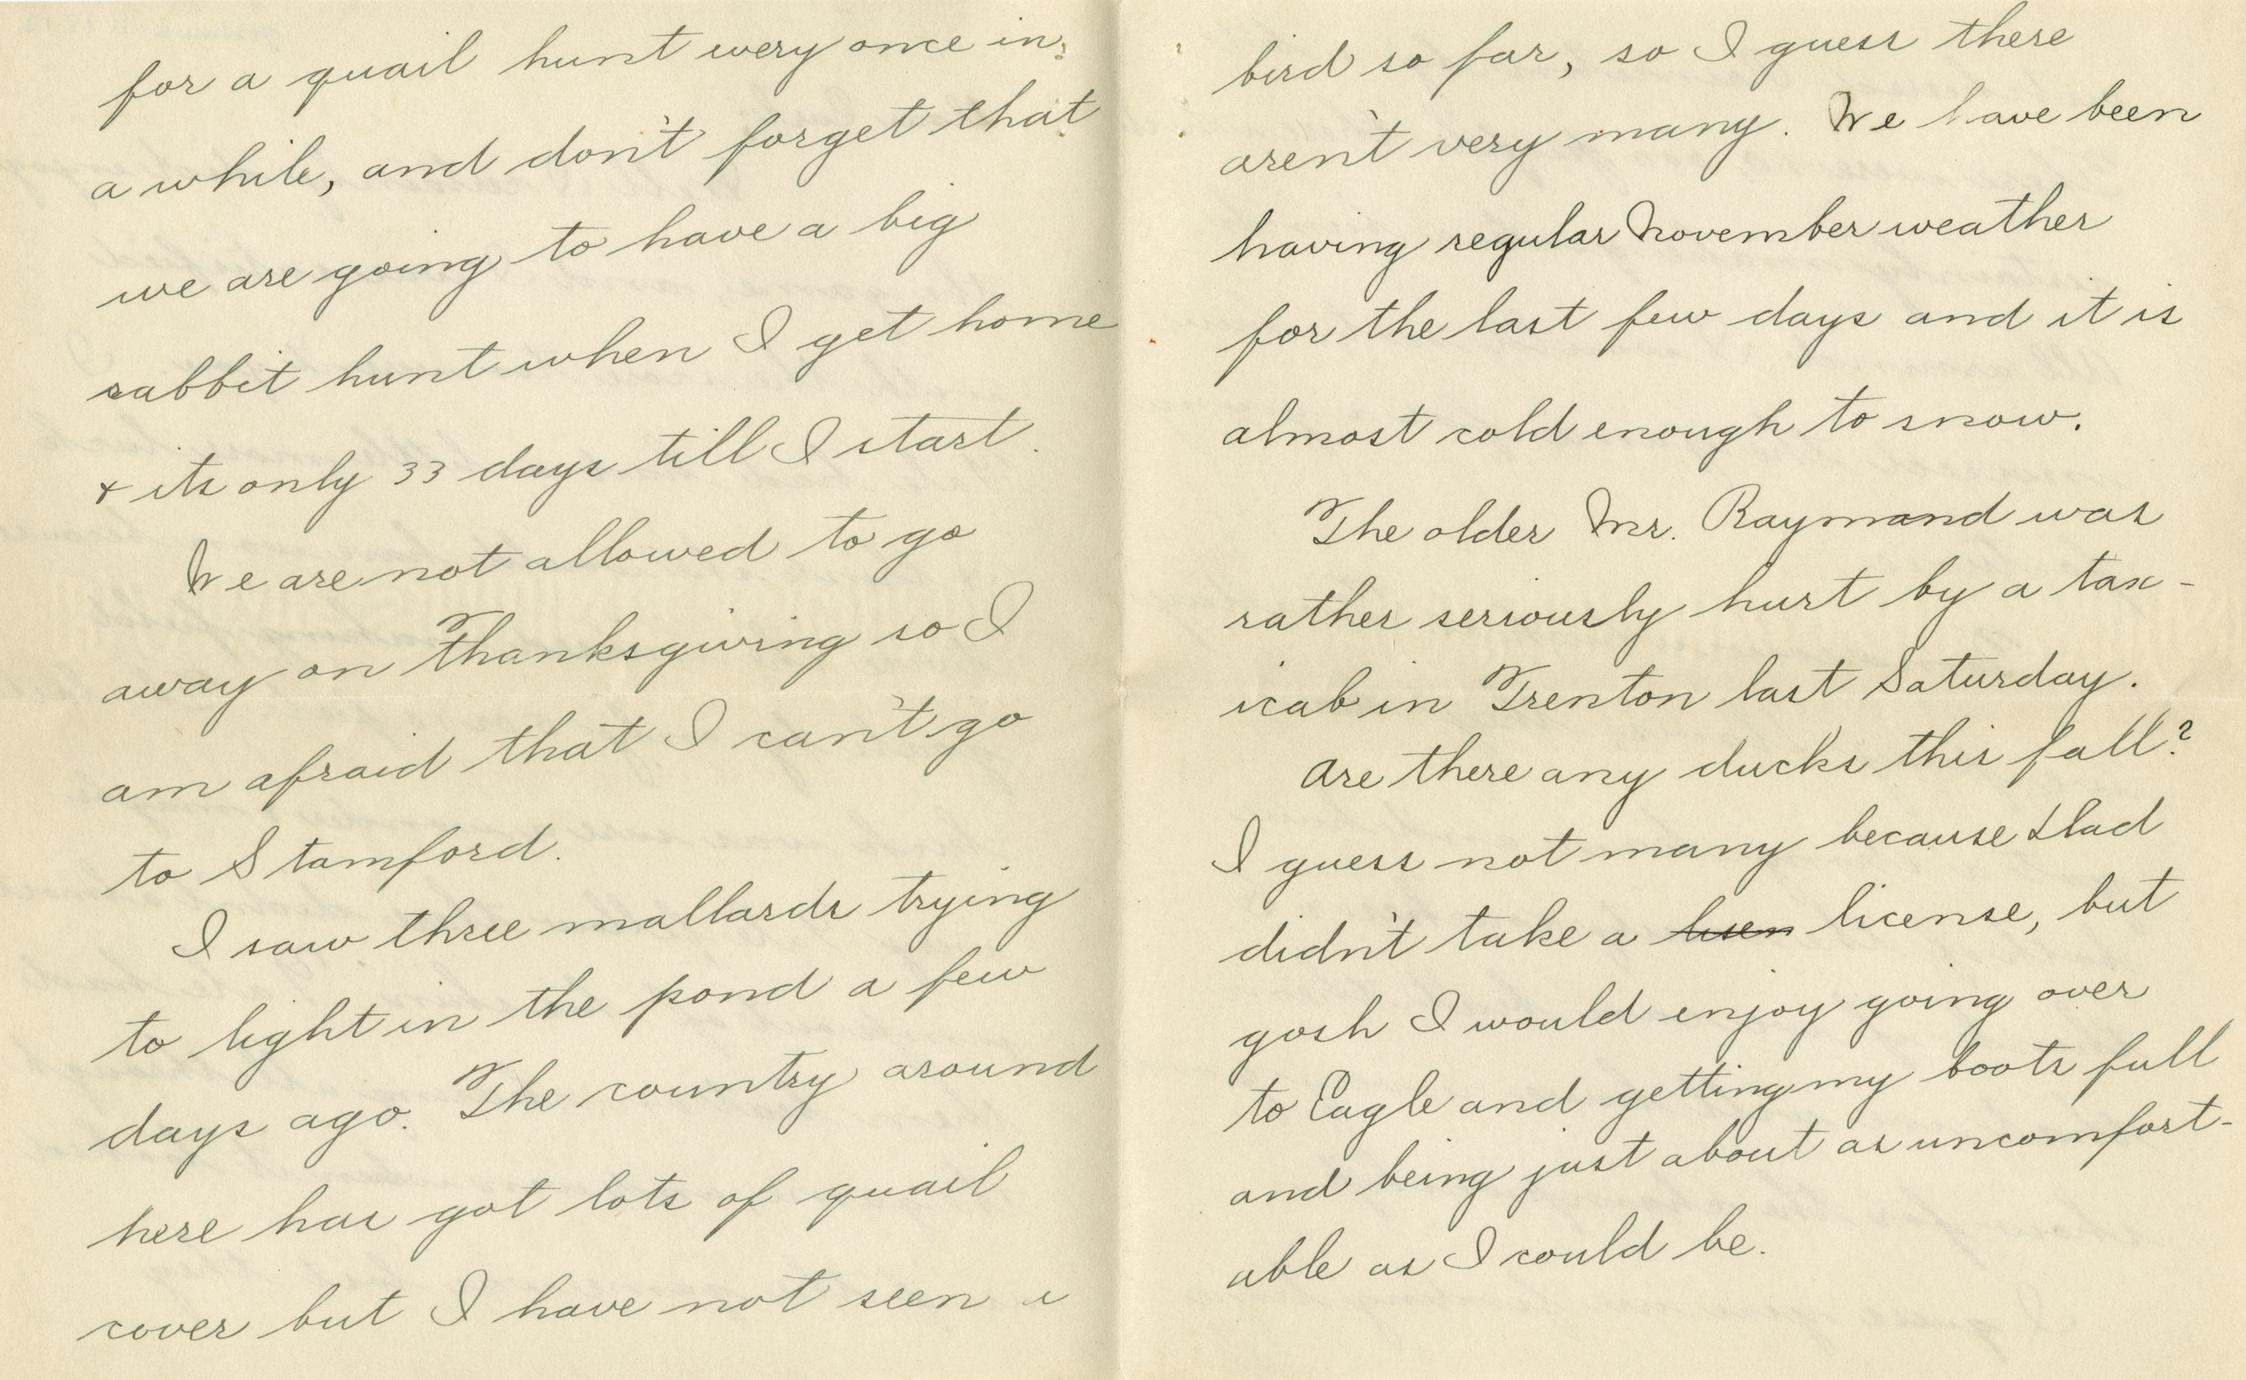 for a quail hunt every once in
a while, and don't forget that
we are going to have a big
rabbit hunt when I get home
+ its only 33 days till I start.
We are not allowed to go
away on Thanksgiving so I
am afraid that I can't go
to Stamford.
I saw three mallards trying
to light in the pond a few
days ago. The country around
here has got lots of quail
cover but I have not seen a
bird so far, so I guess there
aren't very many. We have been
having regular November weather
for the last few days and it is
almost cold enough to snow.
The older Mr. Raymand was
rather seriously hurt by a tax-
icab in Trenton last Saturday.
Are there any ducks this fall?
I guess not many because Dad
didn't take a license, but
gosh I would enjoy going over
to Eagle and getting my boots full
and being just about as uncomfort-
able as I could be.